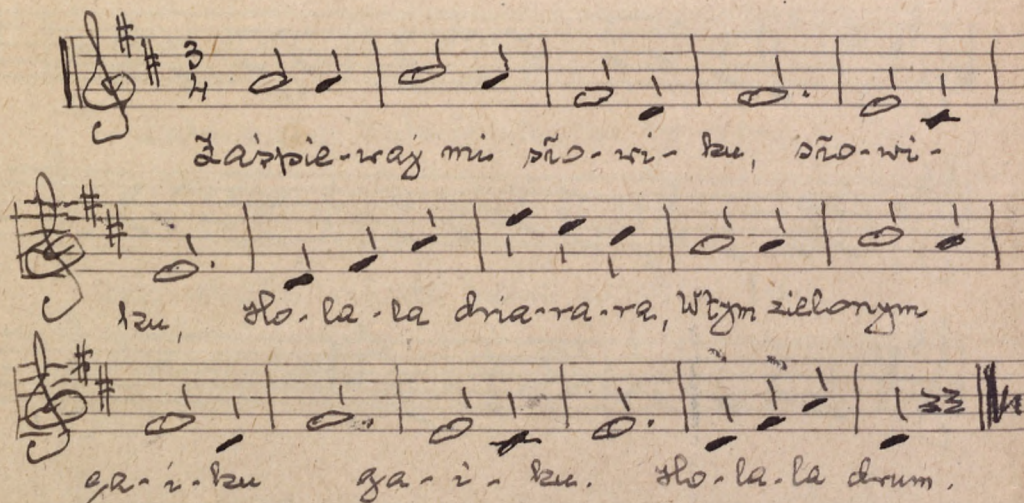 3
4
Zaśpie-waj mi sło-wi-ku, sło-wi-
ku, Ho-la-la dria-ra-ra, W tym zielonym
ga-i-ku ga-i-ku. Ho-la-la drum.